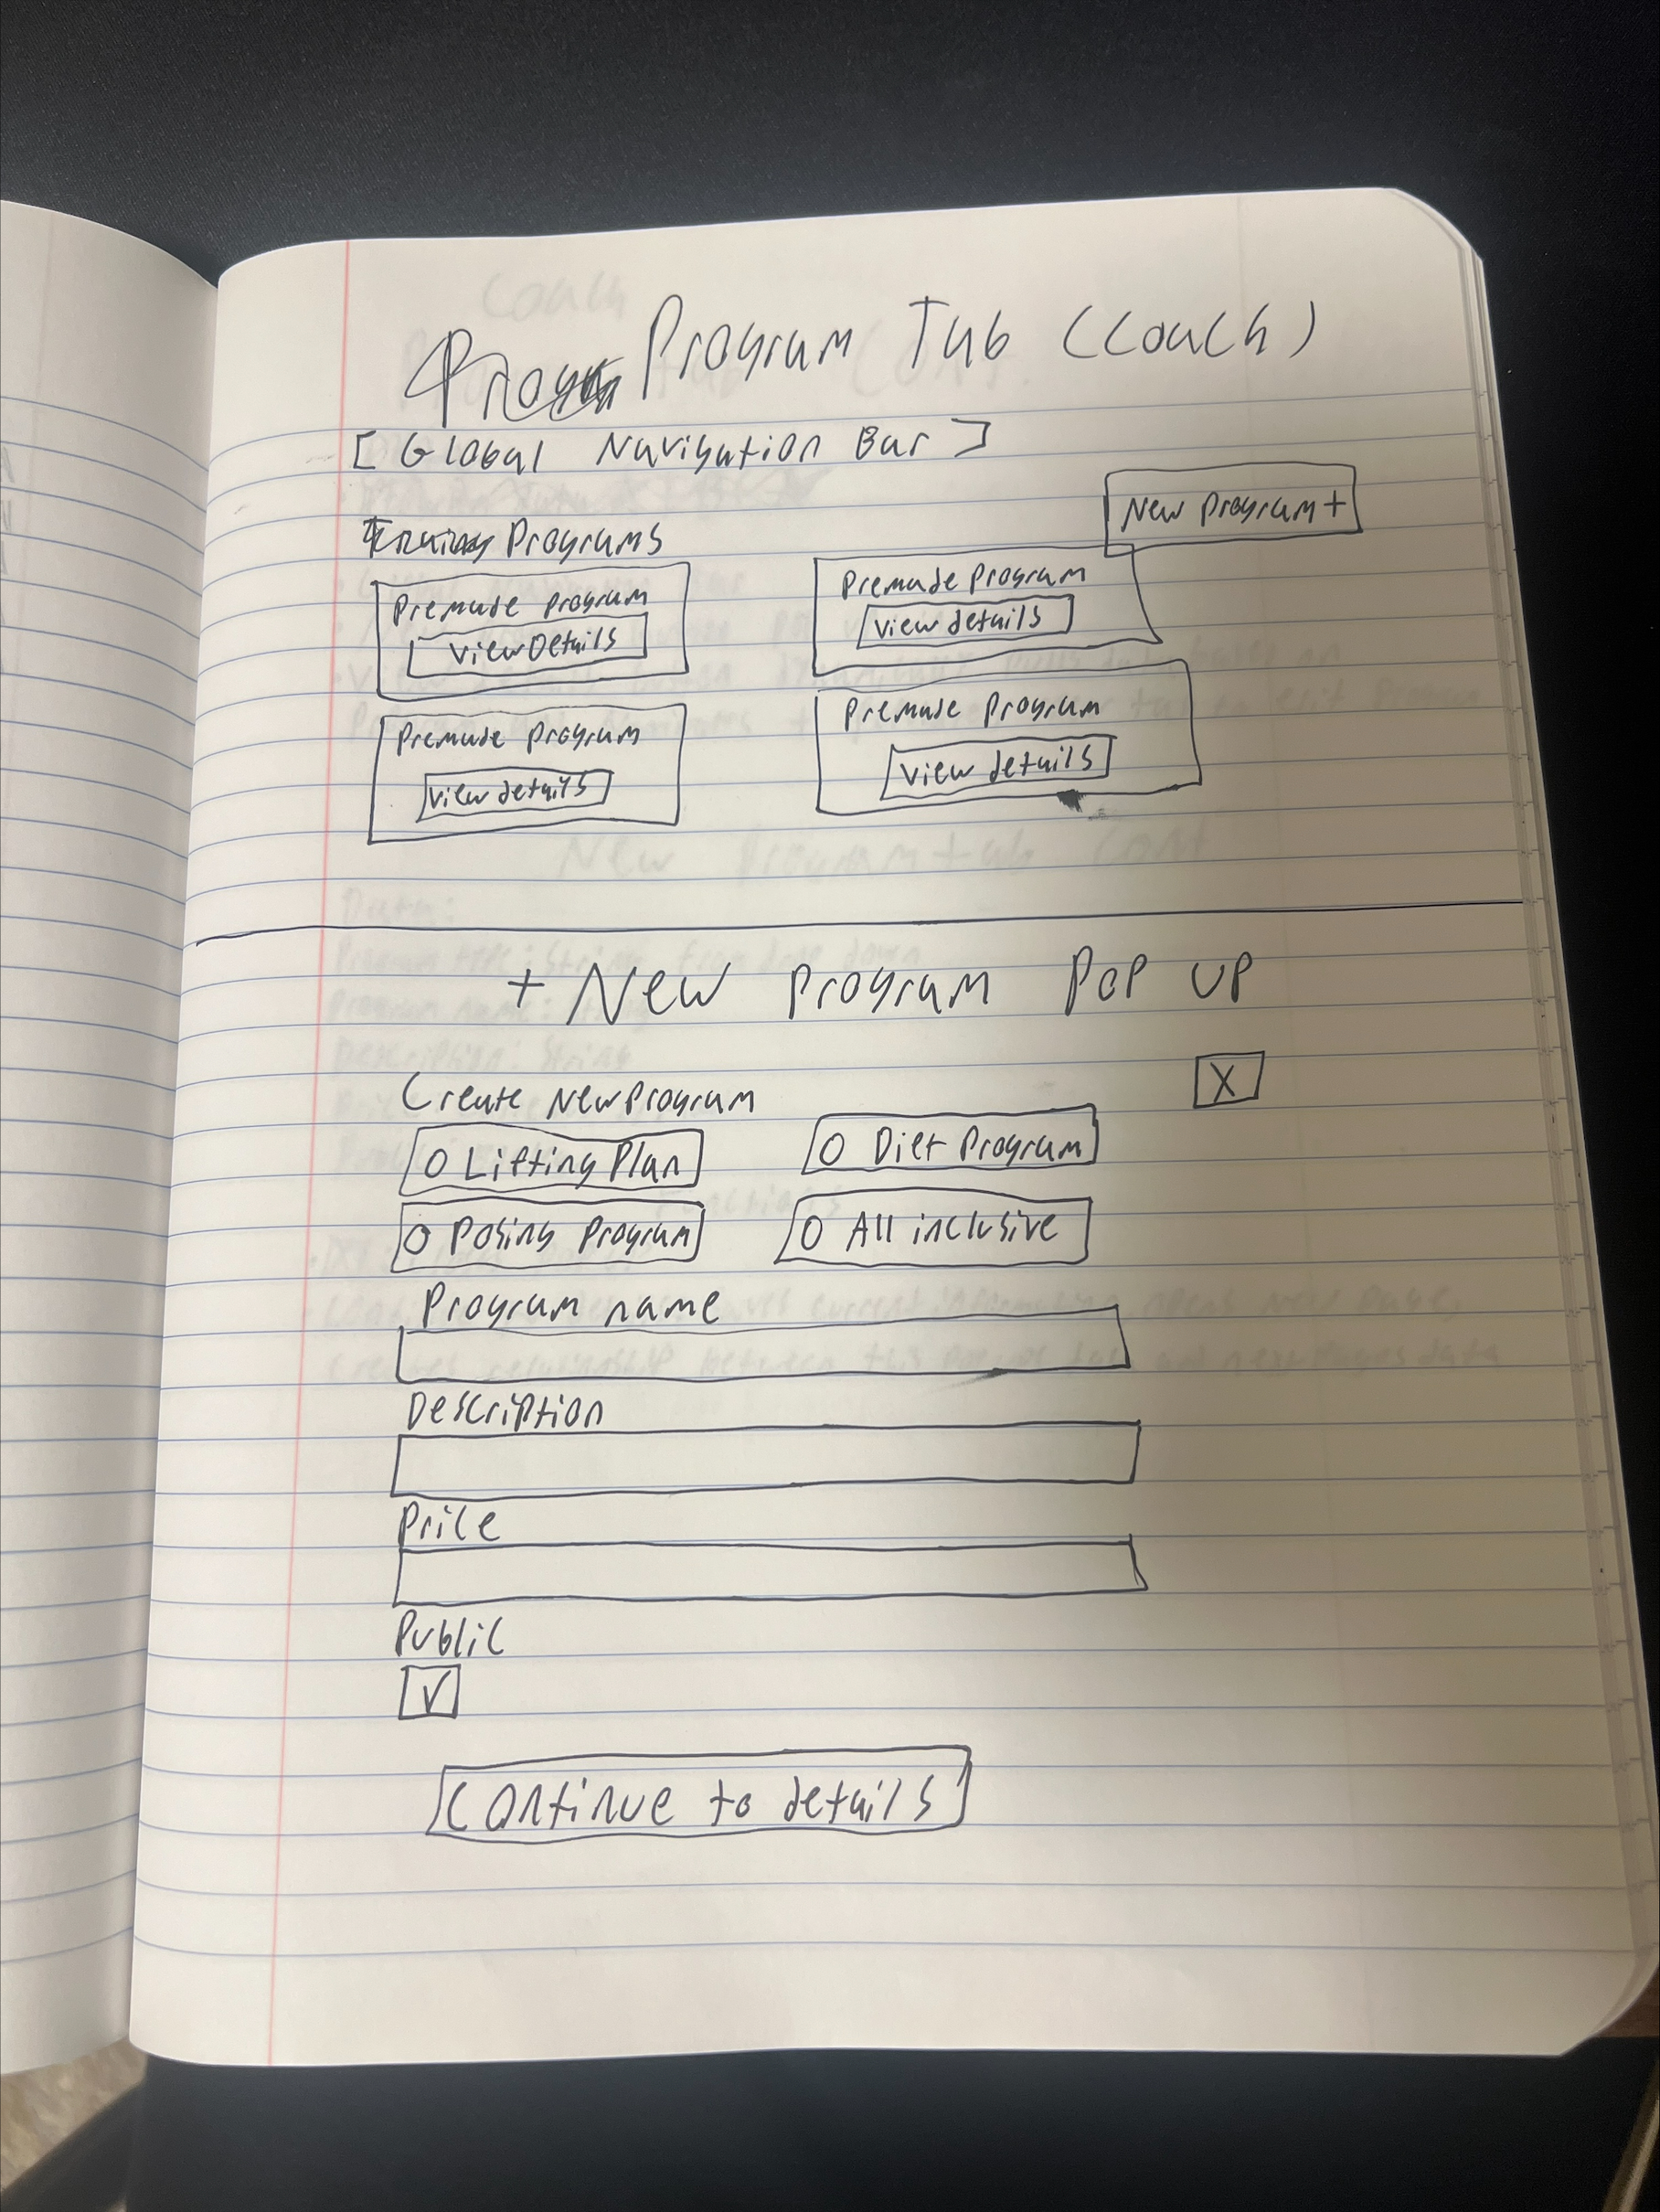 Program Tab (Coach)
[Global Navigation Bar]
New Program+
Programs
Premade Program
View Details
Premade Program
View details
Premade Program
View details
Premade Program
View details
+ New Program Pop UP
Create New Program
X
O Lifting Plan
O Diet Program
O Posing Program
O All inclusive
Program name
Description
Price
Public
Continue to details